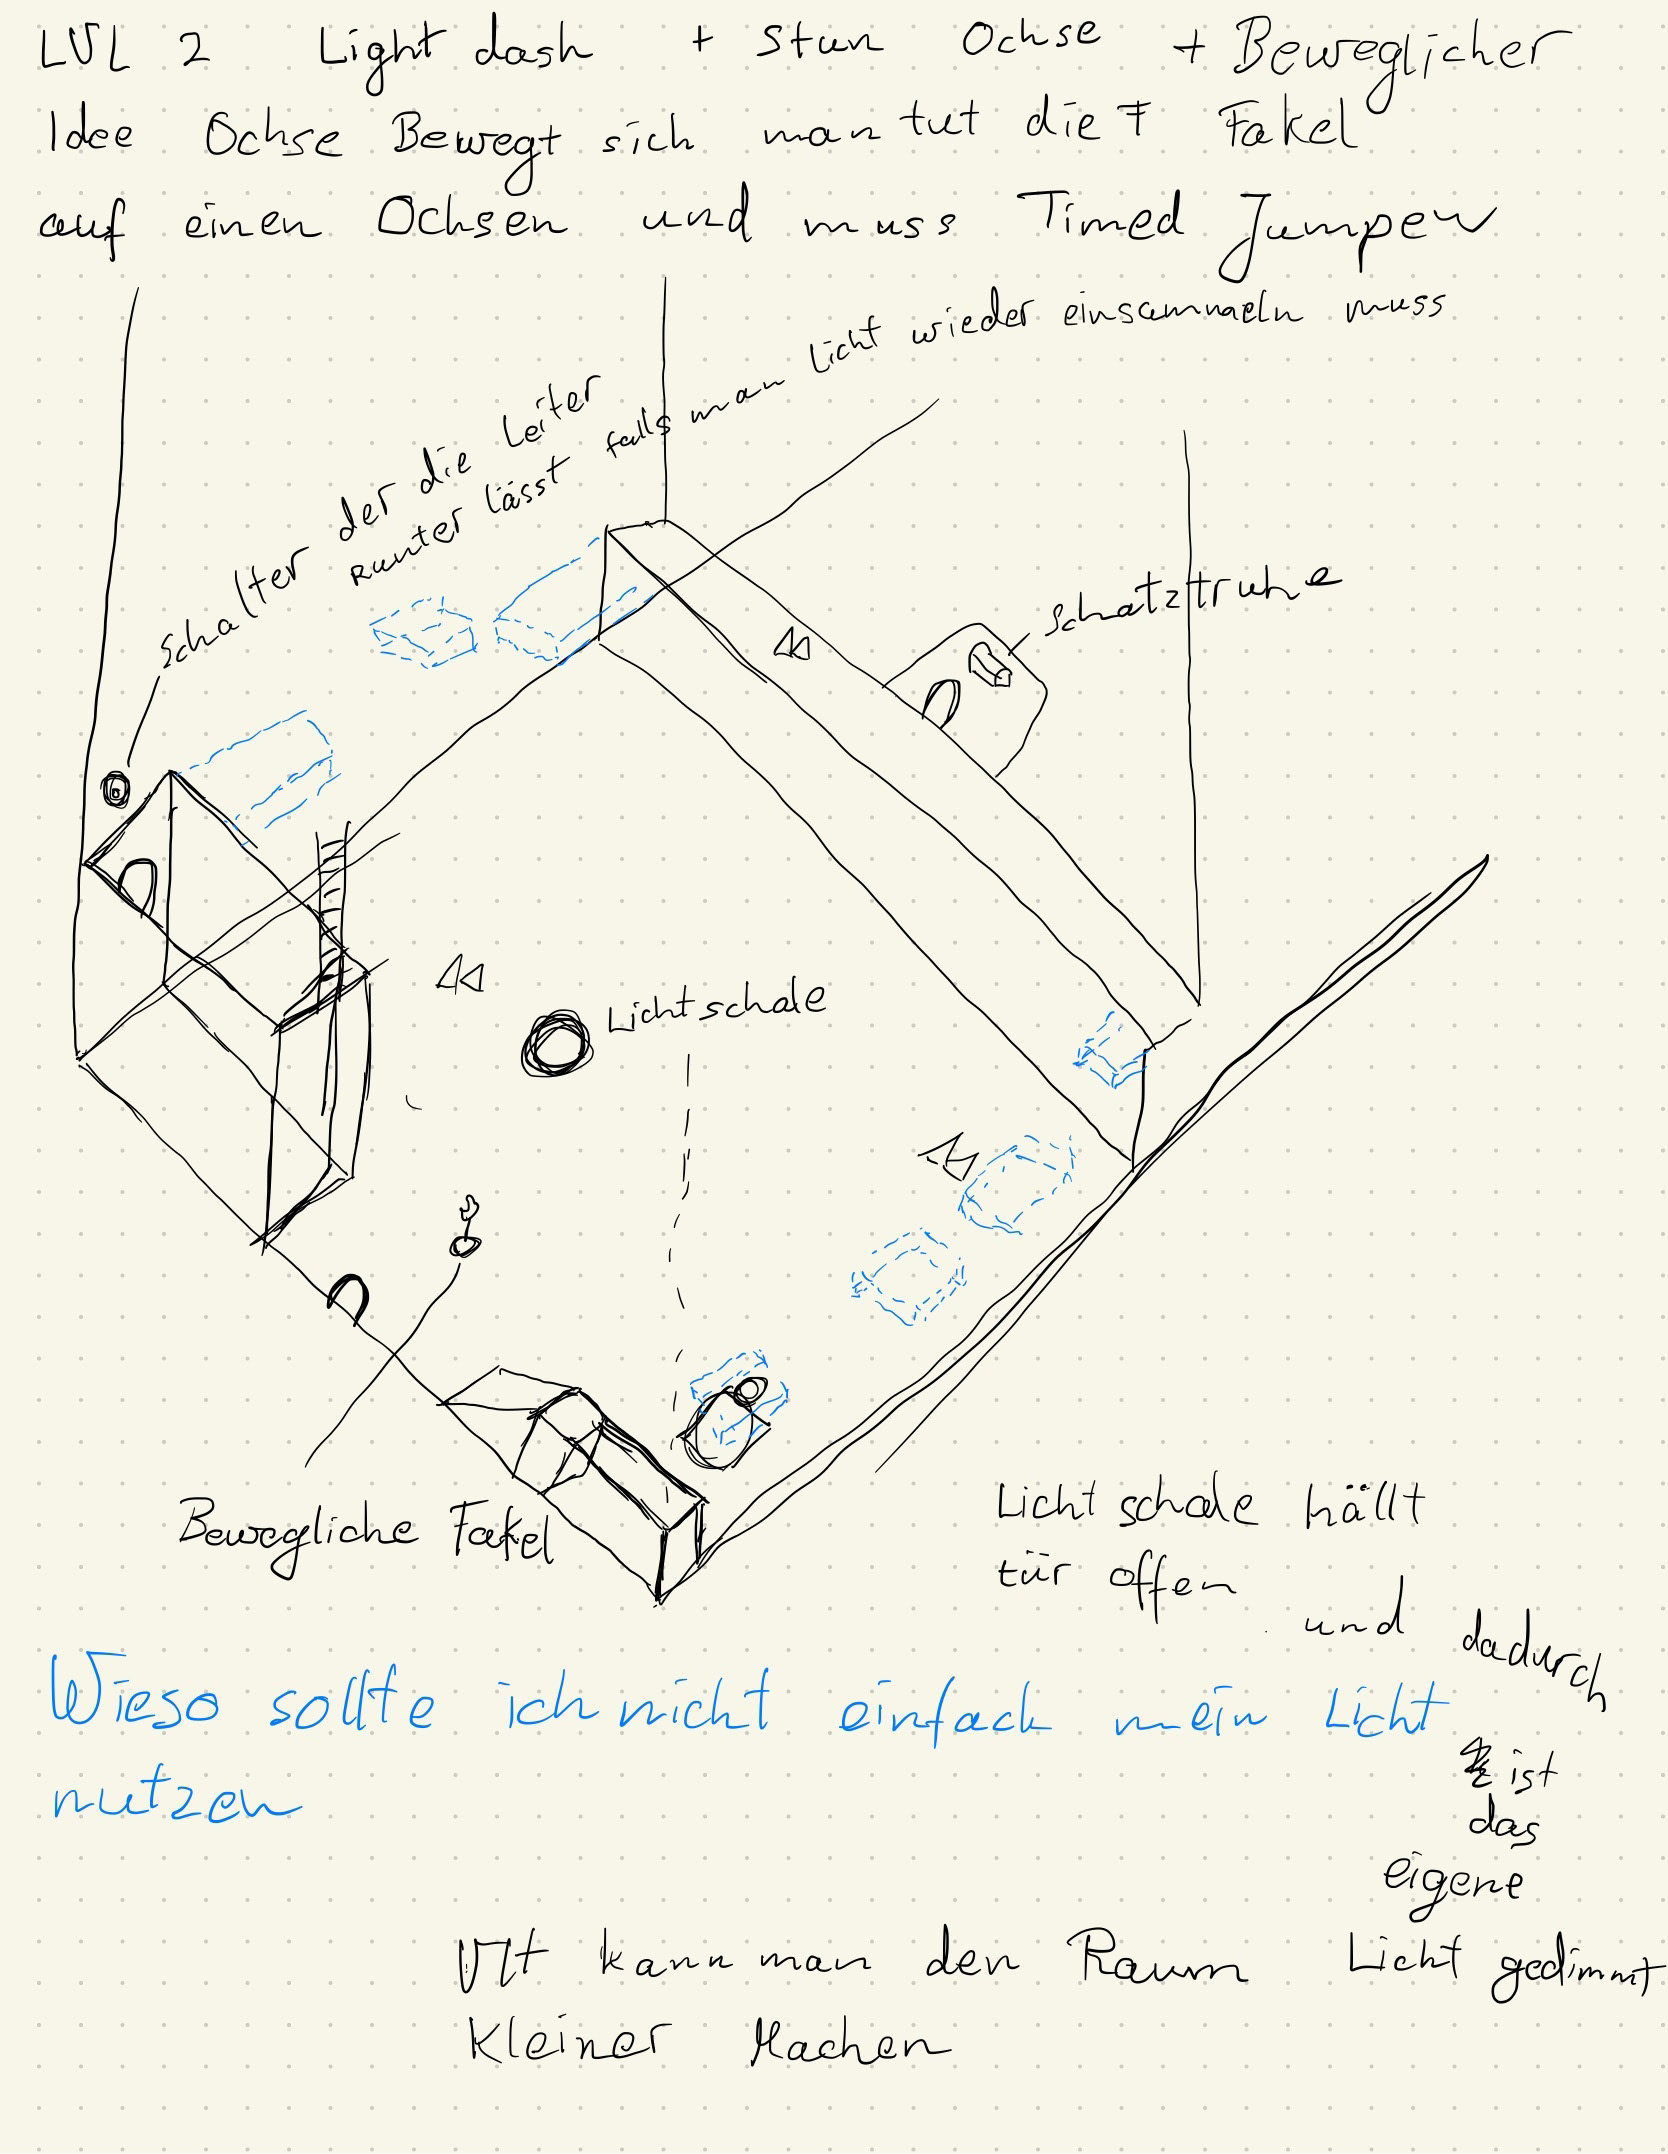 LVL 2 Light dash + Stun Ochse + Beweglicher
Idee Ochse Bewegt sich man tut die Fakel
auf einen Ochsen und muss Timed Jumpen
Schalter der die Leiter
runter lässt falls man Licht wieder einsammeln muss
Schatztruhe
Lichtschale
Bewegliche Fakel
Lichtschale hällt
tür offen
und dadurch
ist
das
eigene
Licht gedimmt
Wieso sollte ich nicht einfach mein Licht
nutzen
Vlt kann man den Raum
Kleiner Machen